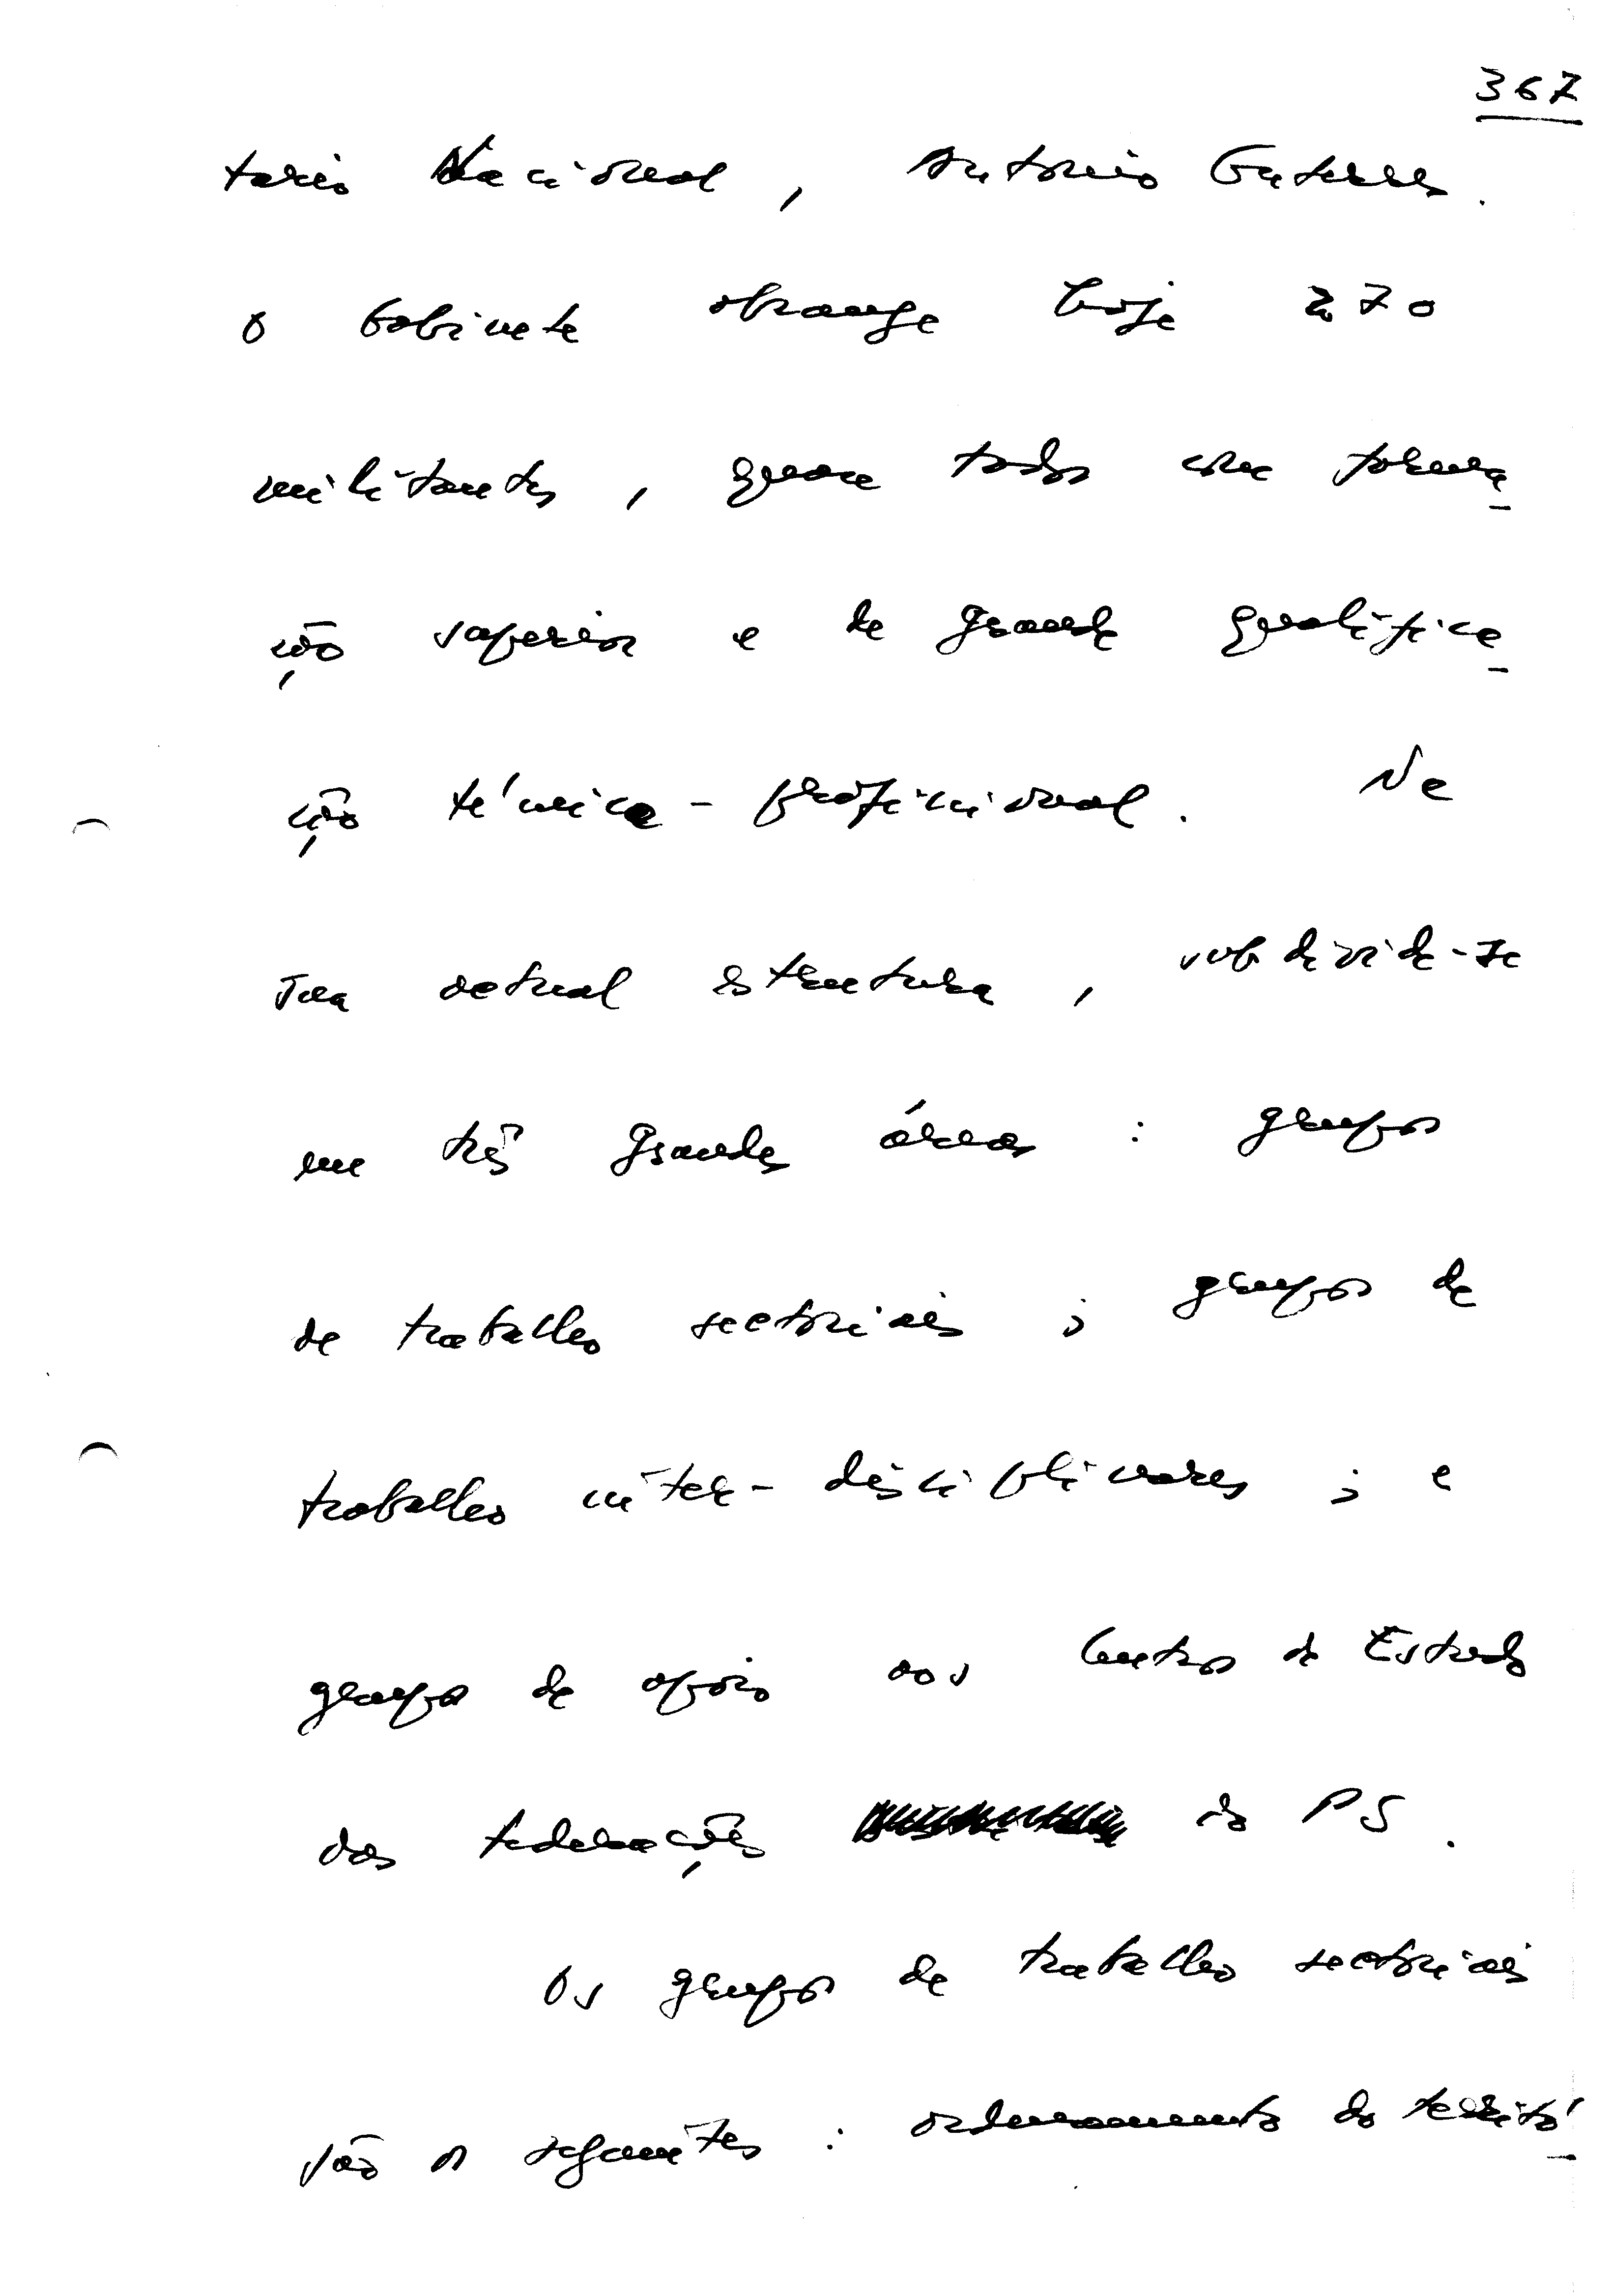 367
tário Nacional, António Guterres.
O Gabinete abrange hoje 270
militantes, quase todos com forma_
ção superior e de grande qualifica_
ção técnica-profissional. Na
sua actual estrutura, subdivide-se
em três grandes áreas: grupos
de trabalho sectoriais; grupos de
trabalho inter-disciplinares; e
grupos de apoio aos Centros de Estudo
das federações do PS.
Os grupos de trabalho sectoriais
são os seguintes: ordenamento do territó_